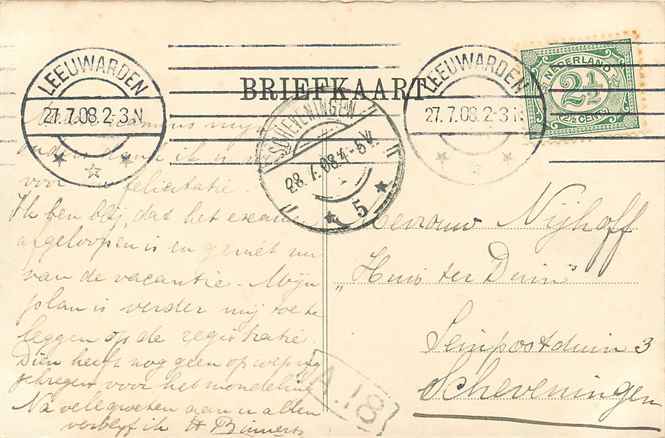 BRIEFKAART
LEEUWARDEN
27.7.08.2-3.N
LEEUWARDEN
27.7.08.2-3.N
NEDERLAND
2½
2½ CENT
SCHEVENINGEN
28.7.08.4-5V.
5
A.18
mijn
ik u
voor felicitatie.
Ik ben blij, dat het examen
afgeloopen is en geniet nu
van de vacantie. Mijn
plan is verder mij toe te
leggen op de registratie
Dien heeft nog geen oproeping
gekregen voor het mondeling
Na vele groeten aan u allen
verblijf ik H
Mevrouw Nijhoff
„Huis ter Duin"
Seinpostduin 3
Scheveningen